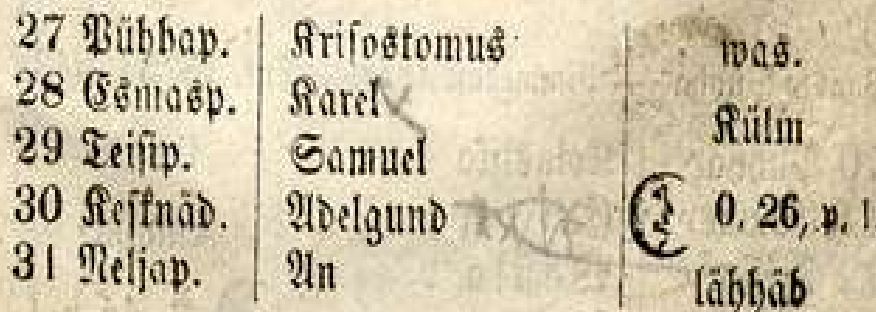 27 Pühhap. Krisostomus was.
28 Esmasp. Karel Külm
29 Teisip. Samuel
30 Kesknäd. Adelgund 0. 26, p. l.
31 Neljap. An lähhäb